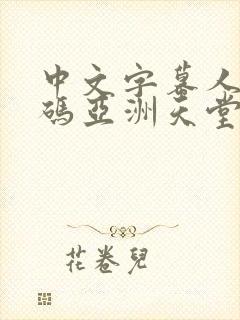 中文字幕人
碼亞洲天堂
花卷兒